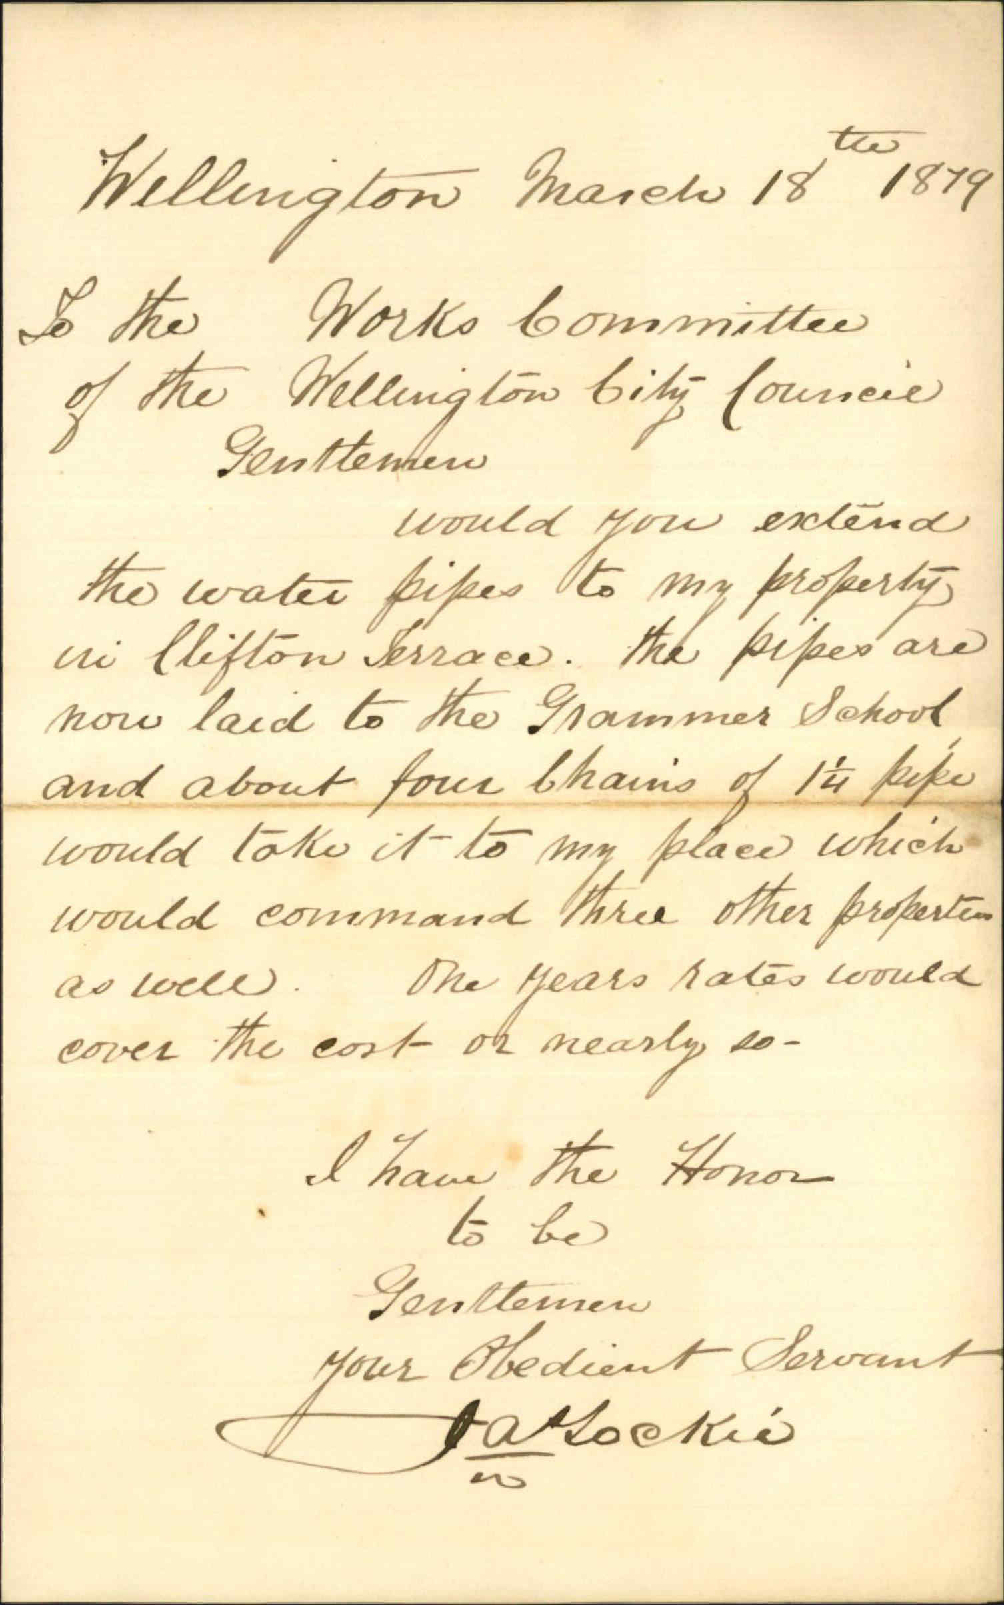 Wellington March 18th 1879
To the Works Committee
of the Wellington City Council
Gentlemen
would you extend
the water pipes to my property
in Clifton Terrace. The pipes are
now laid to the Grammer School,
and about four Chains of 1¼ pipe
would take it to my place which
would command three other properties
as well. One years rates would
cover the cost or nearly so-
I have the Honor
to be
Gentlemen
your Obedient Servant
Jas Lockie